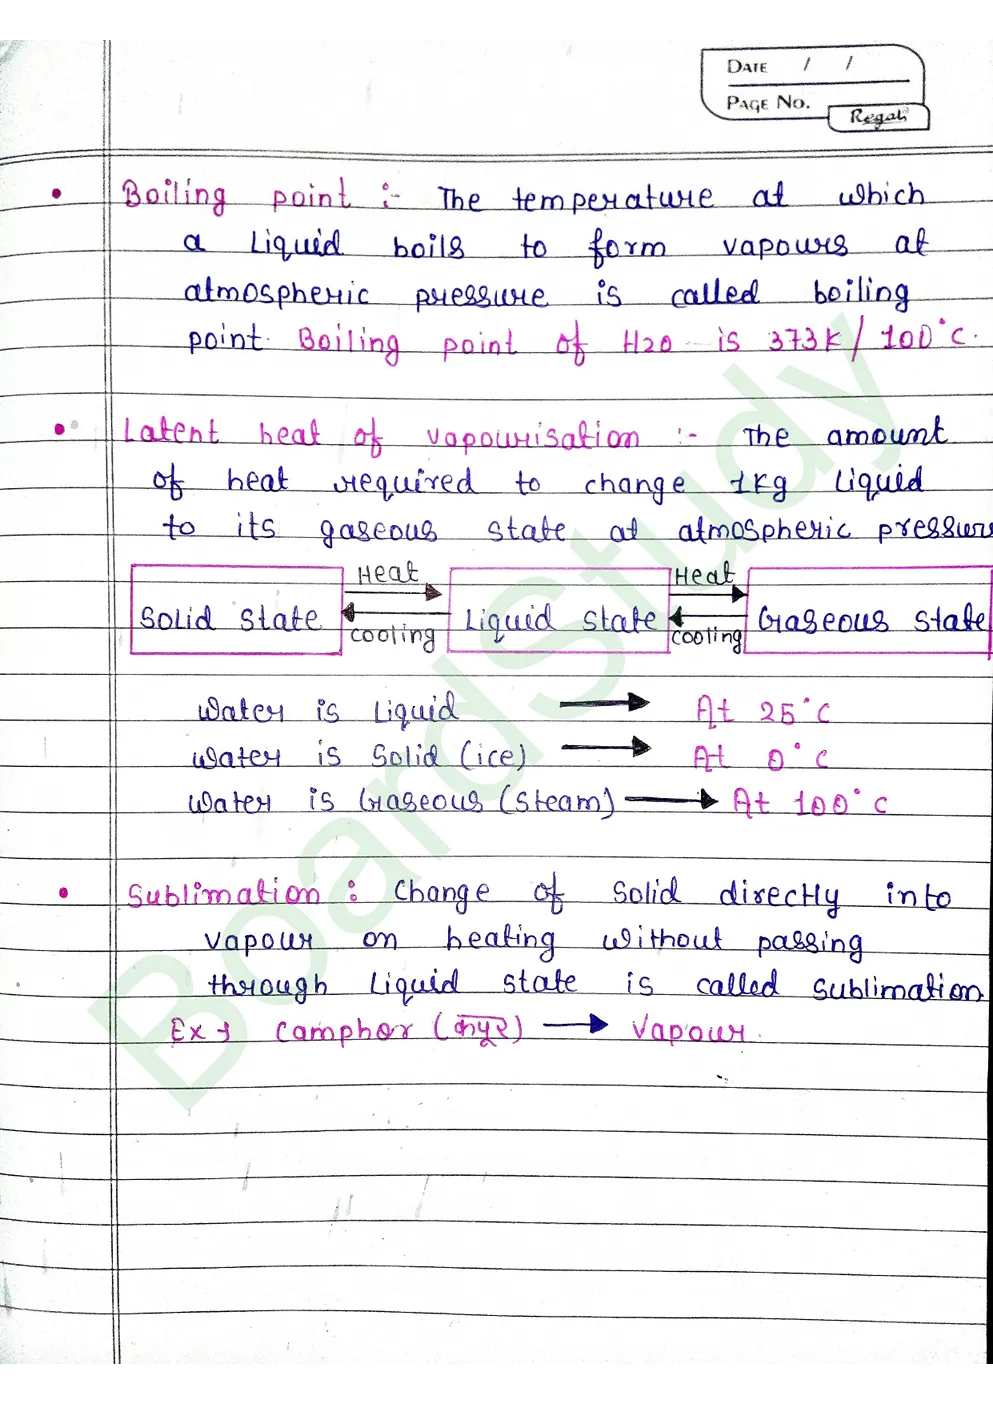 DATE / /
PAGE NO.
Regal
• Boiling point :- The temperature at which
a liquid boils to form vapours at
atmospheric pressure is called boiling
point. Boiling point of H2O is 373K/100°C.
• Latent heat of vapourisation :- The amount
of heat required to change 1kg liquid
to its gaseous state at atmospheric pressure
Heat Heat
Solid State Liquid State Gaseous State
cooling cooling
Water is liquid → At 25°C
Water is Solid (ice) → At 0°C
Water is Gaseous (Steam) → At 100°C
• Sublimation : Change of Solid directly into
vapour on heating without passing
through liquid state is called sublimation
Ex → Camphor (कपूर) → Vapour.
BoardStudy